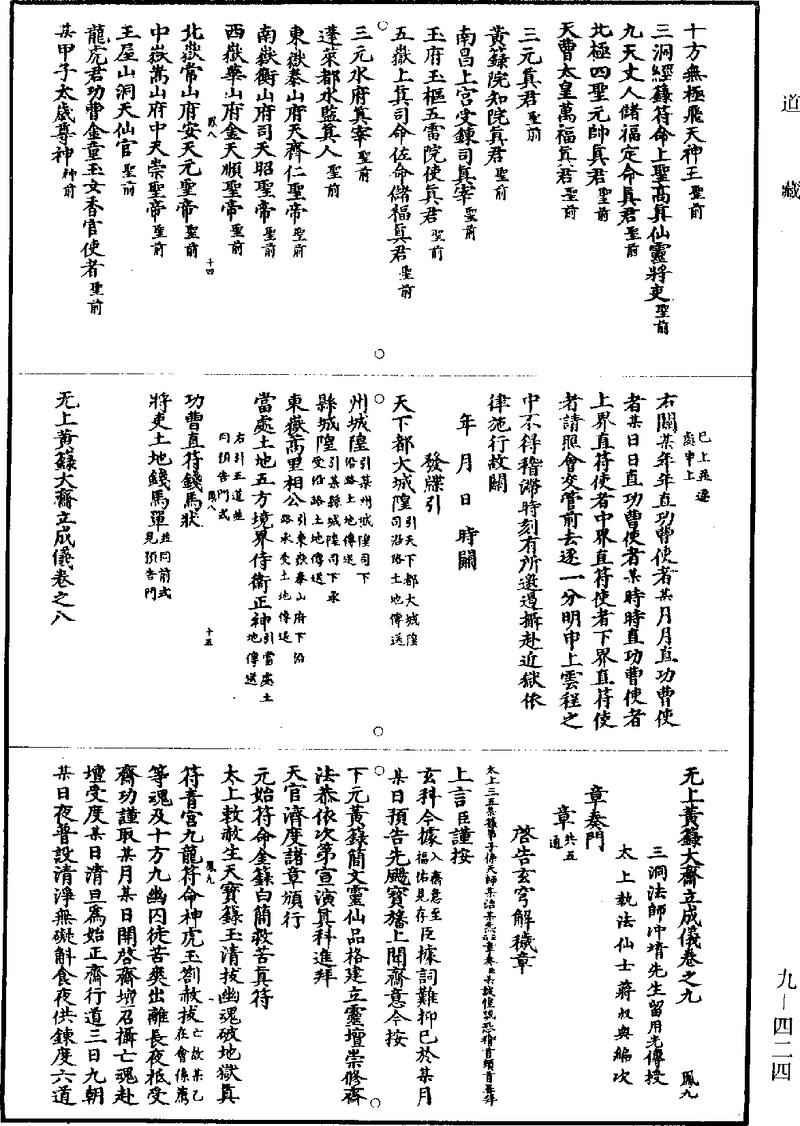 道藏
十方無極飛天神王聖前
三洞經籙符命上聖高真仙靈將吏聖前
九天丈人儲福定命真君聖前
北極四聖元帥真君聖前
天曹太皇萬福真君聖前
三元真君聖前
黃籙院知院真君聖前
南昌上宮受鍊司真宰聖前
玉府玉樞五雷院使真君聖前
五嶽上真司命佐命儲福真君聖前
三元水府真宰聖前
蓬萊都水監真人聖前
東嶽泰山府天齊仁聖帝聖前
南嶽衡山府司天昭聖帝聖前
西嶽華山府金天順聖帝聖前
鳳八 十四
北嶽常山府安天元聖帝聖前
中嶽嵩山府中天崇聖帝聖前
王屋山洞天仙官聖前
龍虎君功曹金童玉女香官使者聖前
某甲子太歲尊神神前
已上並逐處申上
右關某年年直功曹使者某月月直功曹使
者某日日直功曹使者某時時直功曹使者
上界直符使者中界直符使者下界直符使
者請照會交管前去逐一分明申上雲程之
中不得稽滯時刻有所邀遏攝赴近獄依
律施行故關
年月日時關
發牒引
天下都大城隍引天下都大城隍司沿路土地傳送
州城隍引某州城隍司下沿路土地傳送
縣城隍引某縣城隍司下承受沿路土地傳送
東嶽蒿里相公引東嶽泰山府下沿路承受土地傳送
當處土地五方境界侍衛正神引當處土地傳送
右引五道並同預告門式
鳳八 十五
功曹直符錢馬狀
將吏土地錢馬單並同前式見預告門
无上黃籙大齋立成儀卷之八
无上黃籙大齋立成儀卷之九 鳳九
三洞法師沖靖先生留用光傳授
太上執法仙士蔣叔輿編次
章奏門
章共五通
啓告玄穹解穢章
上言臣謹按
玄科今據入齋意至福佑見存臣據詞難抑已於某月
某日預告先颺寶旛上聞齋意今按
下元黃籙簡文靈仙品格建立靈壇崇修齋
法恭依次第宣演真科進拜
天官濟度諸章頒行
元始符命金籙白簡救苦真符
太上敕赦生天寶籙玉清拔幽魂破地獄真
鳳九
符青宮九龍符命神虎玉劄赦拔亡故某乙在會係薦
等魂及十方九幽囚徒苦爽出離長夜袛受
齋功謹取某月某日開啓齋壇召攝亡魂赴
壇受度某日清旦爲始正齋行道三日九朝
某日夜普設清淨無礙斛食夜供鍊度六道
九-四二四